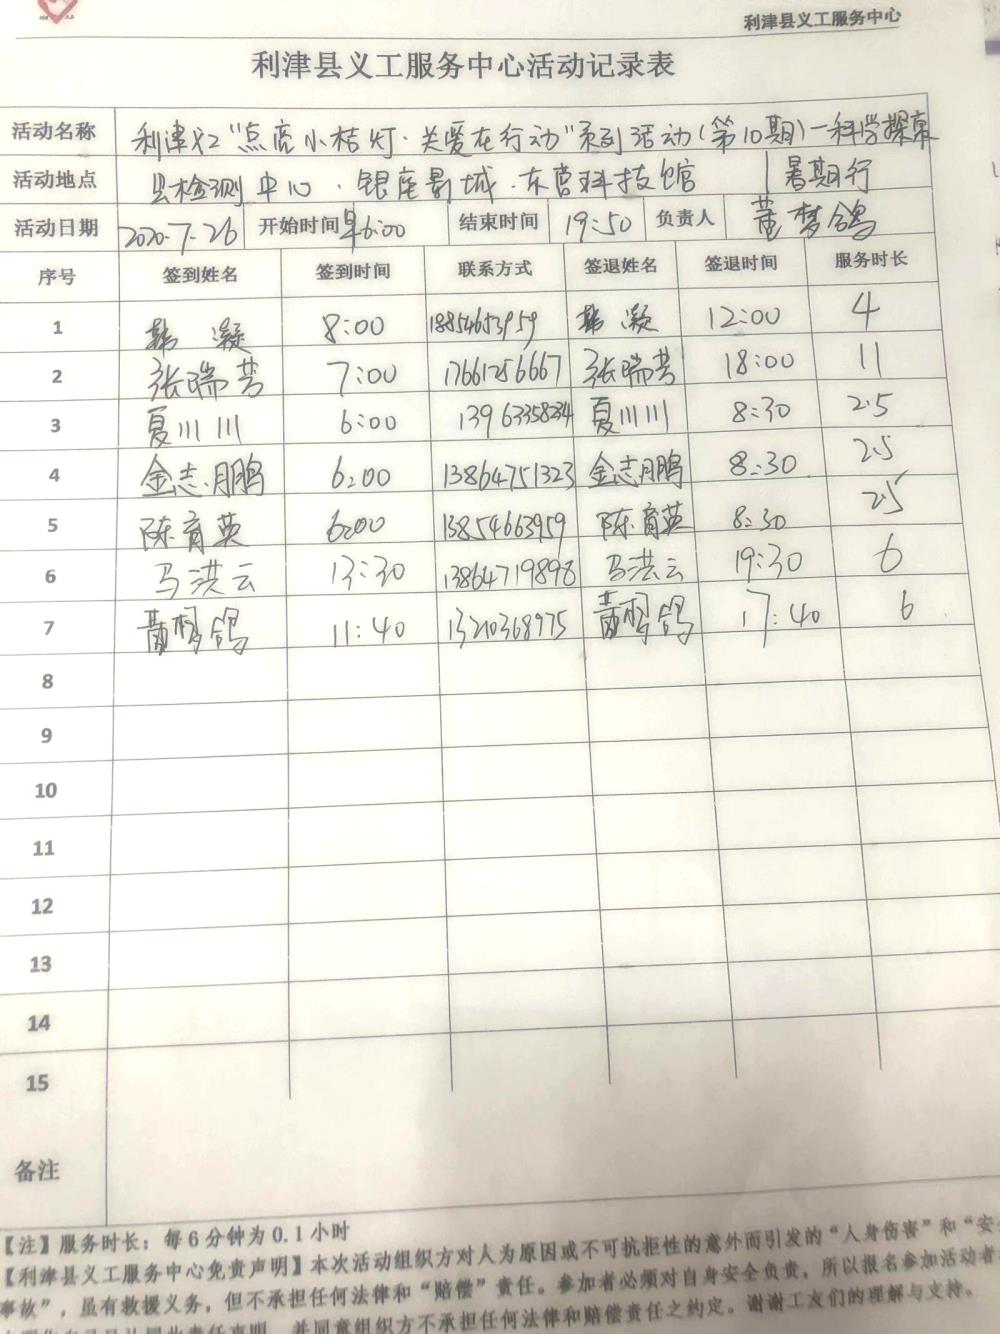 利津县义工服务中心
利津县义工服务中心活动记录表
活动名称 利津义工“点亮小桔灯·关爱在行动”系列活动(第10期)—科学探索
活动地点 县检测中心·银座影城·东营科技馆 暑期行
活动日期 2020.7.26 开始时间 早6:00 结束时间 19:50 负责人 董梦鸽
序号 签到姓名 签到时间 联系方式 签退姓名 签退时间 服务时长
1 韩凝 8:00 18854653959 韩凝 12:00 4
2 张瑞芳 7:00 17661256667 张瑞芳 18:00 11
3 夏川川 6:00 13963358234 夏川川 8:30 2.5
4 金志鹏 6:00 13864751323 金志鹏 8:30 2.5
5 陈育英 6:00 13854663959 陈育英 8:30 2.5
6 马洪云 13:30 13864719898 马洪云 19:30 6
7 董梦鸽 11:40 13210368975 董梦鸽 17:40 6
8
9
10
11
12
13
14
15
备注
【注】服务时长：每6分钟为0.1小时
【利津县义工服务中心免责声明】本次活动组织方对人为原因或不可抗拒性的意外而引发的“人身伤害”和“安
事故”，虽有救援义务，但不承担任何法律和“赔偿”责任。参加者必须对自身安全负责，所以报名参加活动者
并同意组织方不承担任何法律和赔偿责任之约定。谢谢工友们的理解与支持。